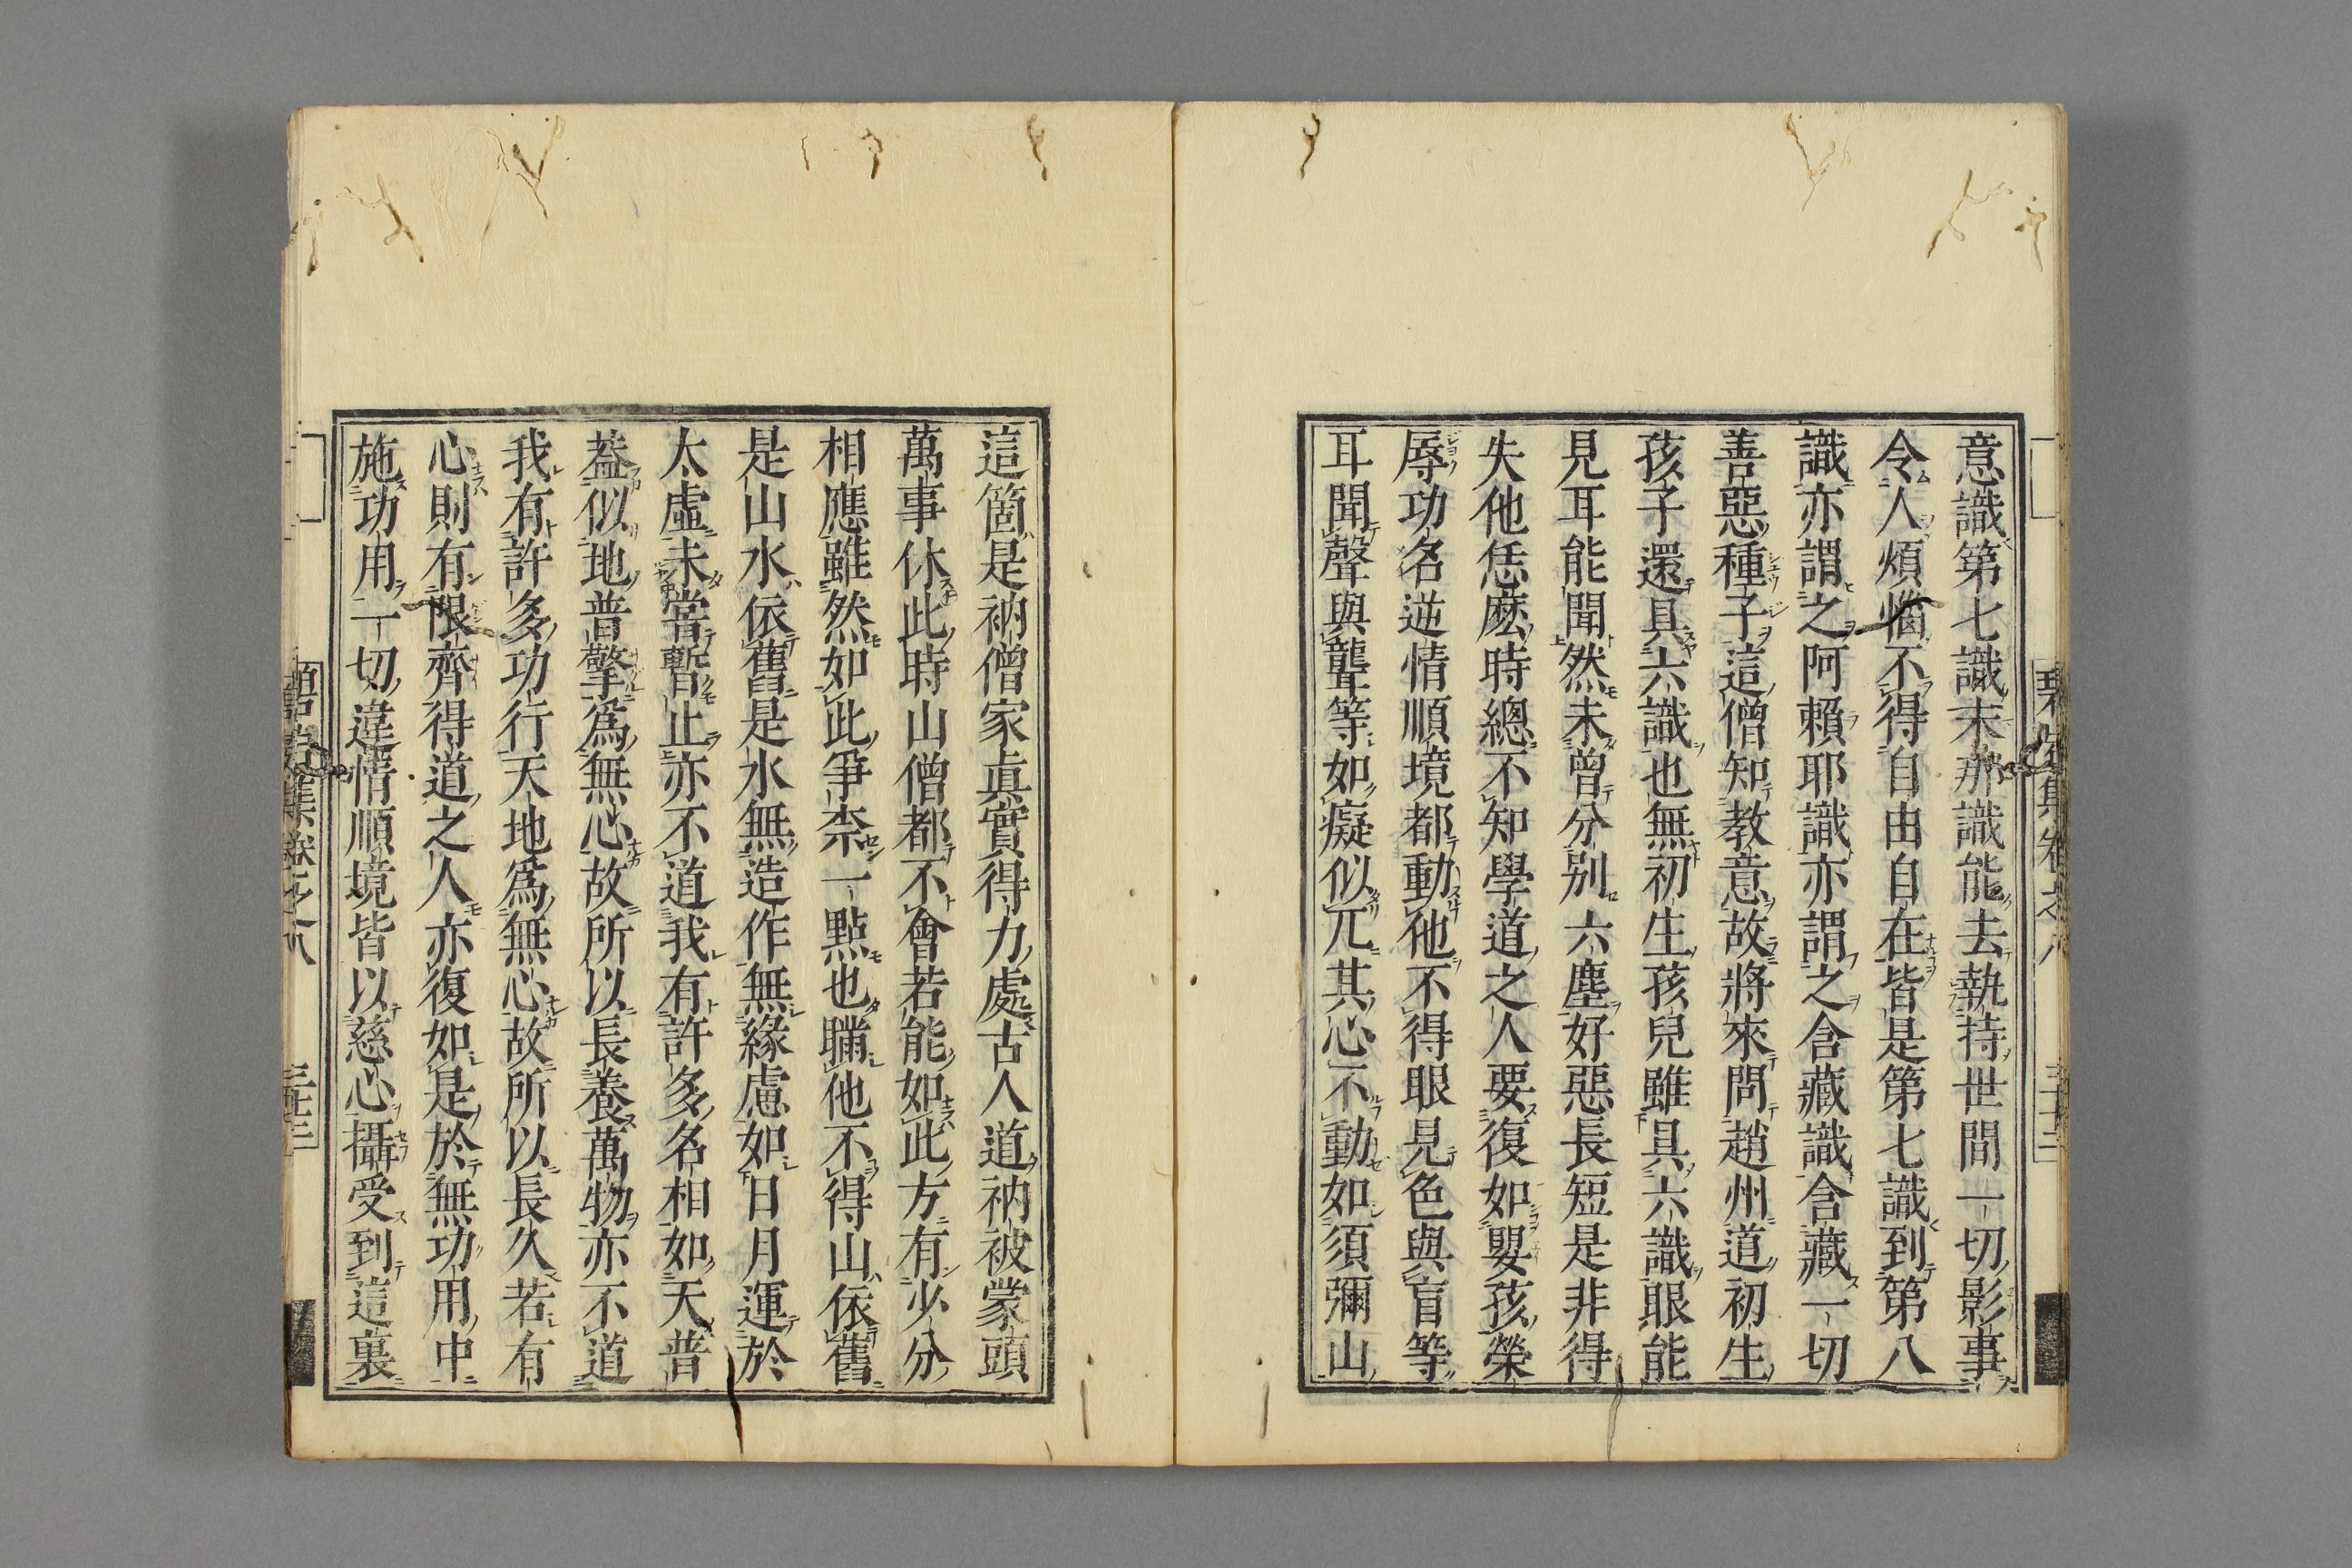 意識第七識末那識能去執持世間一切影事
令人煩惱不得自由自在皆是第七識到第八
識亦謂之阿賴耶識亦謂之含藏識含藏一切
善惡種子這僧知教意故將來問趙州道初生
孩子還具六識也無初生孩兒雖具六識眼能
見耳能聞然未曾分別六塵好惡長短是非得
失他恁麽時總不知學道之人要復如嬰孩榮
辱功名逆情順境都動他不得眼見色與盲等
耳聞聲與聾等如癡似兀其心不動如須彌山
這箇是衲僧家眞實得力處古人道衲被蒙頭
萬事休此時山僧都不會若能如此方有少分
相應雖然如此爭柰一點也瞞他不得山依舊
是山水依舊是水無造作無緣慮如日月運於
太虛未嘗暫止亦不道我有許多名相如天普
蓋似地普擎爲無心故所以長養萬物亦不道
我有許多功行天地爲無心故所以長久若有
心則有限齊得道之人亦復如是於無功用中
施功用一切違情順境皆以慈心攝受到這裏